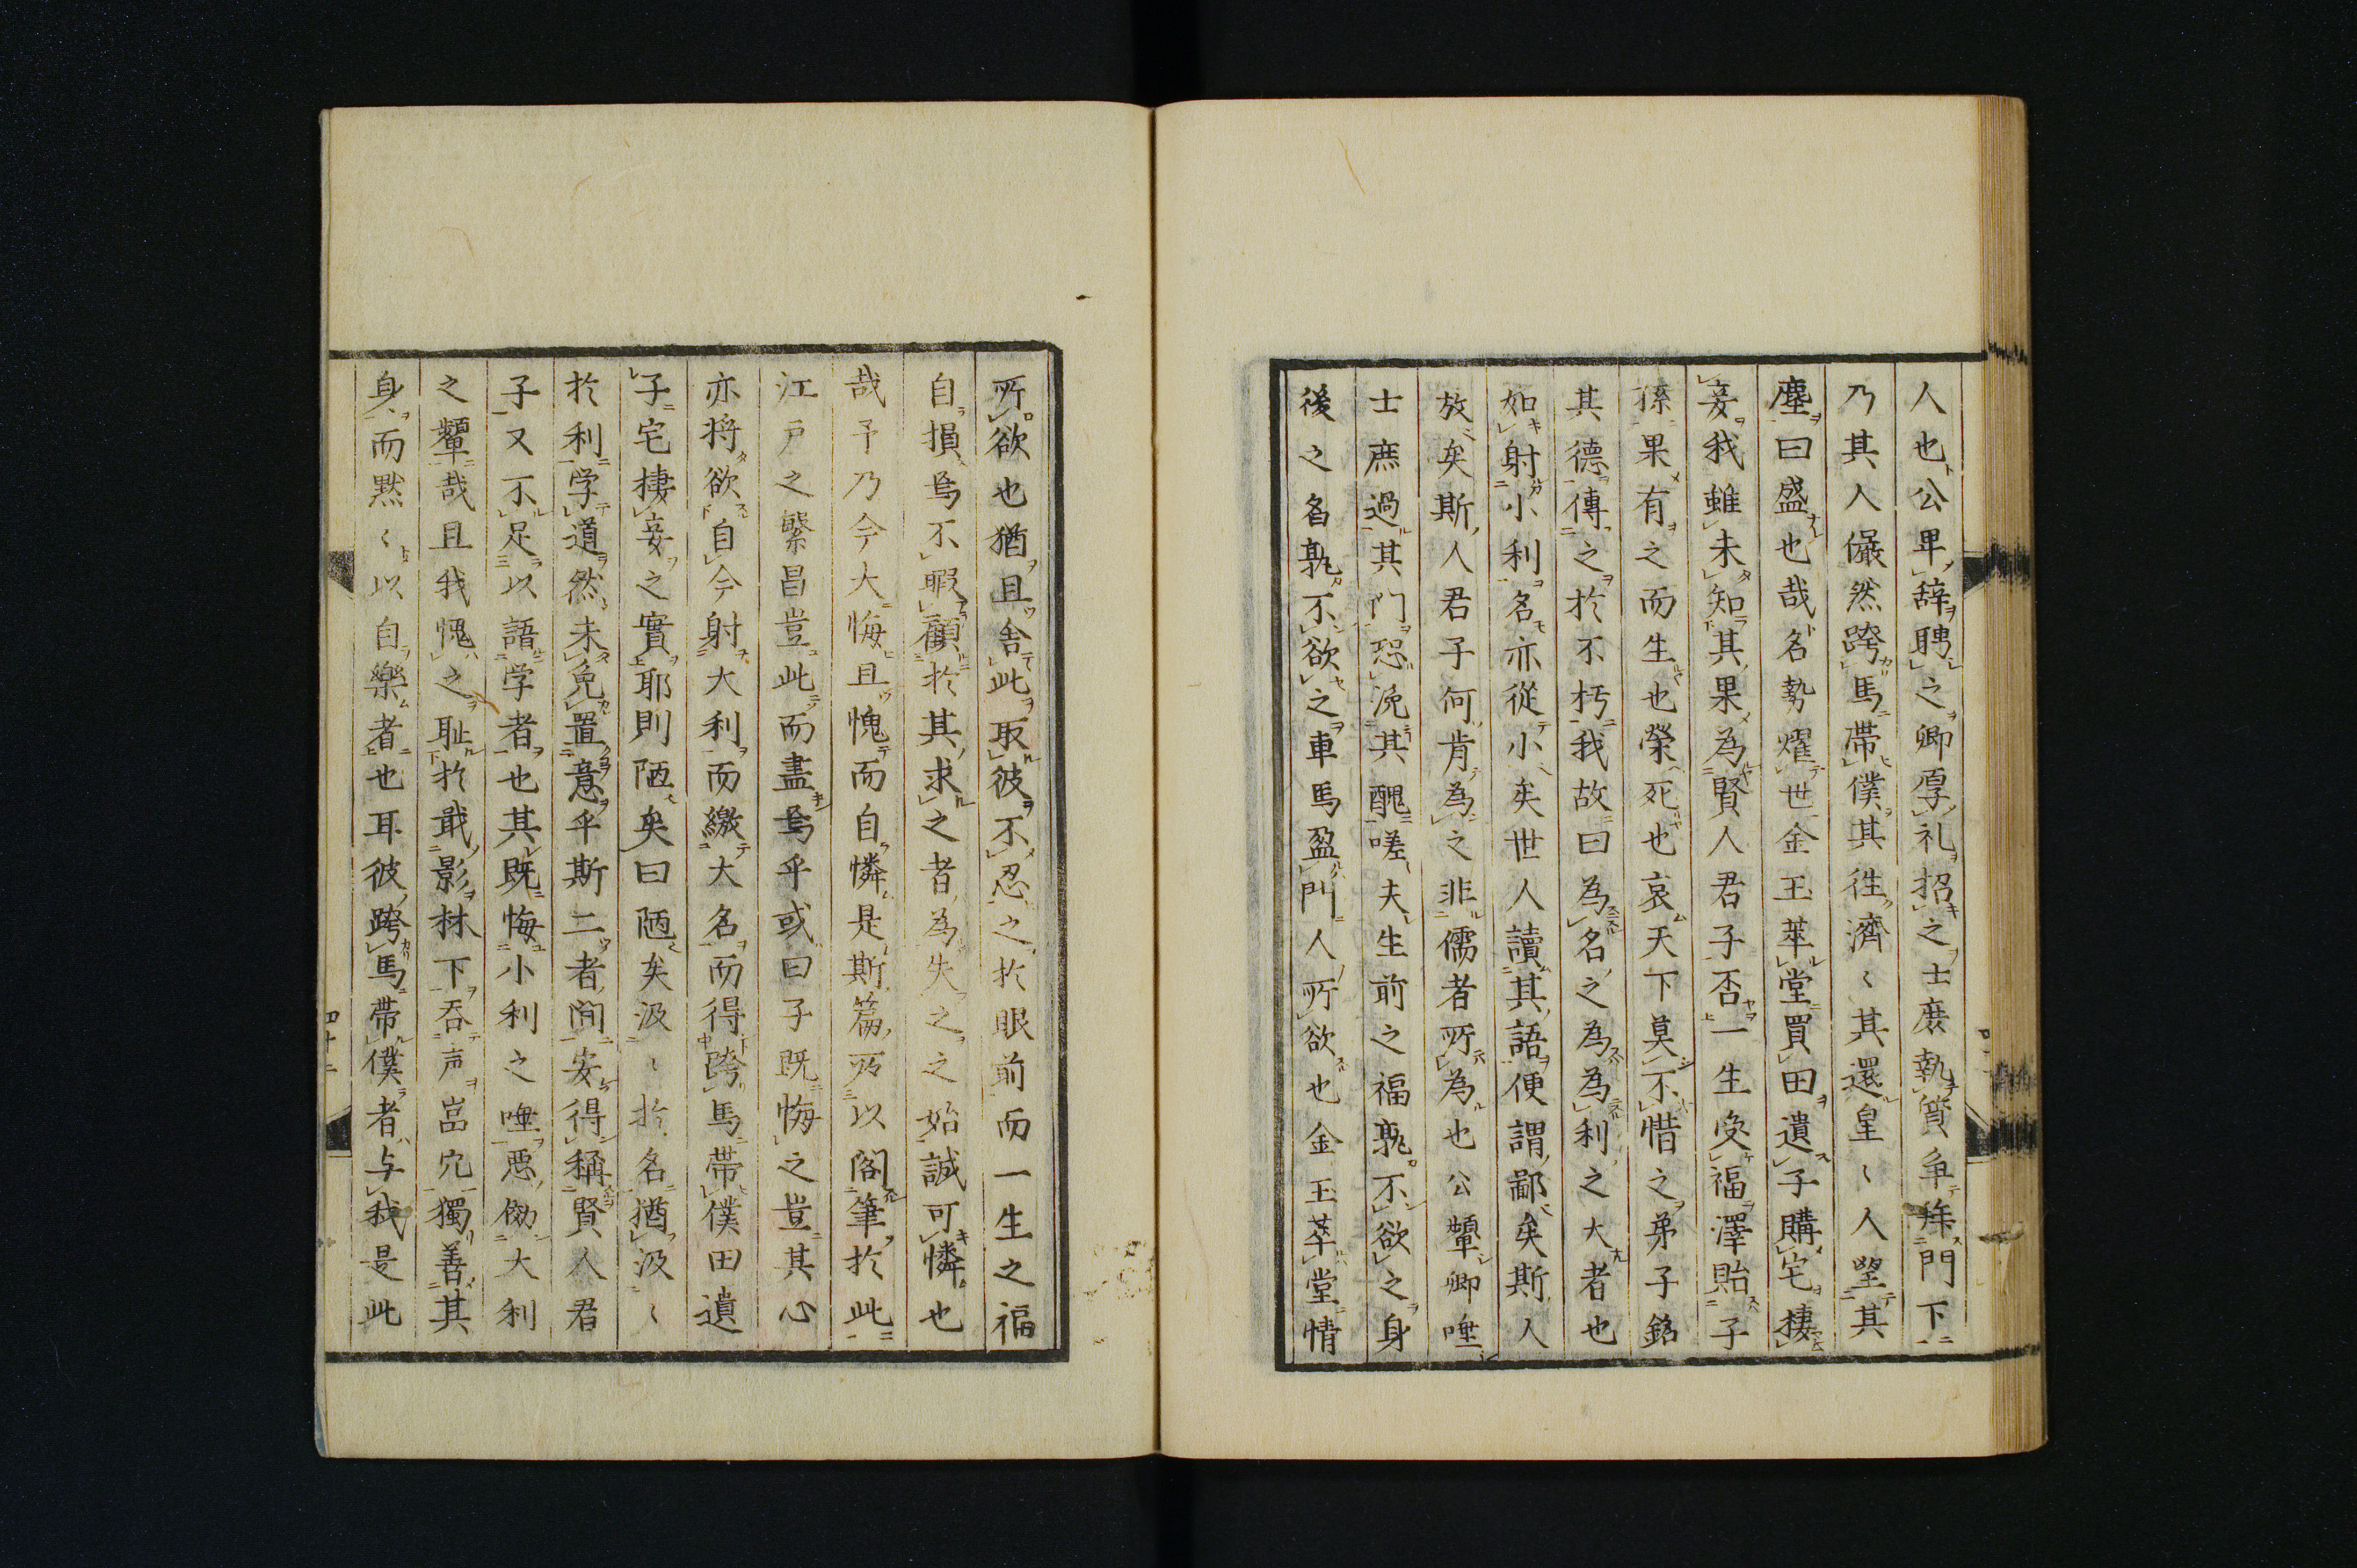 人也公卑辞聘之卿厚礼招之士庶執贄争踵門下
乃其人儼然跨馬帯僕其往濟〻其還皇〻人望其
塵曰盛也哉名勢燿世金玉萃堂買田遺子購宅棲
妾我雖未知其果為賢人君子否一生受福澤貽子
孫果有之而生也榮死也哀天下莫不惜之弟子銘
其德傳之於不朽我故曰為名之為為利之大者也
如射小利名亦從小矣世人讀其語便謂鄙矣斯人
放矣斯人君子何肯為之非儒者所為也公顰卿唾
士庶過其門恐浼其醜嗟夫生前之福孰不欲之身
後之名孰不欲之車馬盈門人所欲也金玉萃堂情
所欲也猶且舍此取彼不忍之於眼前而一生之福
自損焉不暇顧於其求之者為失之之始誠可憐也
哉予乃今大悔且愧而自憐是斯篇所以閣筆於此
江戸之繁昌豈此而盡焉乎或曰子既悔之豈其心
亦将欲自今射大利而繳大名而得跨馬帯僕田遺
子宅棲妾之實耶則陋矣曰陋矣汲〻於名猶汲〻
於利学道然未免置意乎斯二者間安得稱賢人君
子又不足以語学者也其既悔小利之唾悪傚大利
之顰哉且我愧之耻於戢影林下吞声嵓穴獨善其
身而黙〻以自樂者也耳彼跨馬帯僕者与我是此
四十二